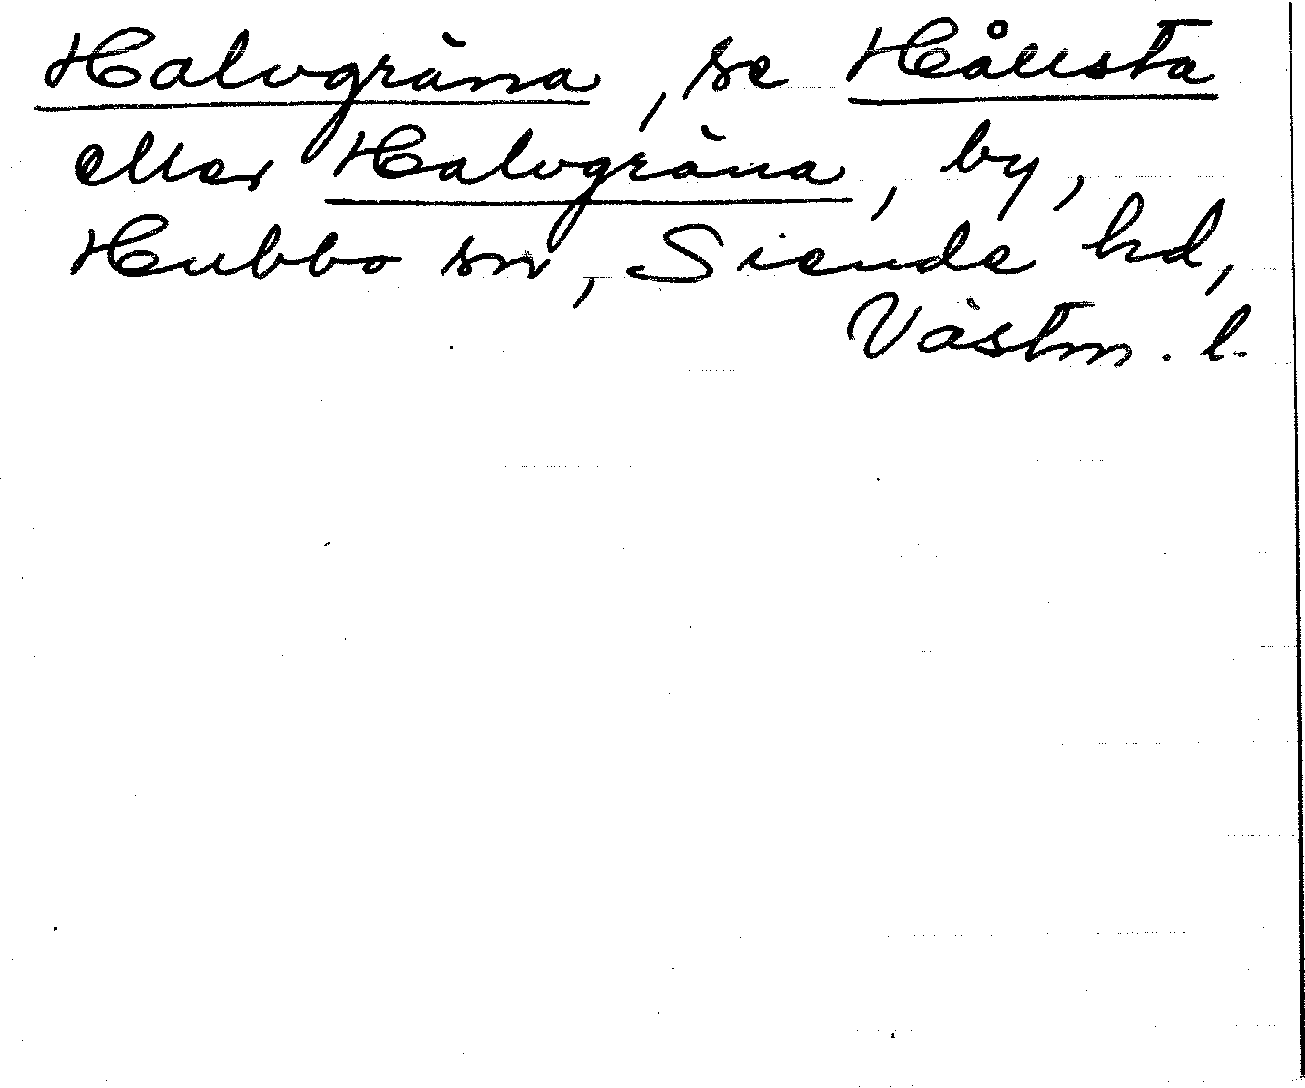 Halvgräna, se Hållsta
eller Halvgräna, by,
Hubbo sn, Siende hd,
Västm. l.